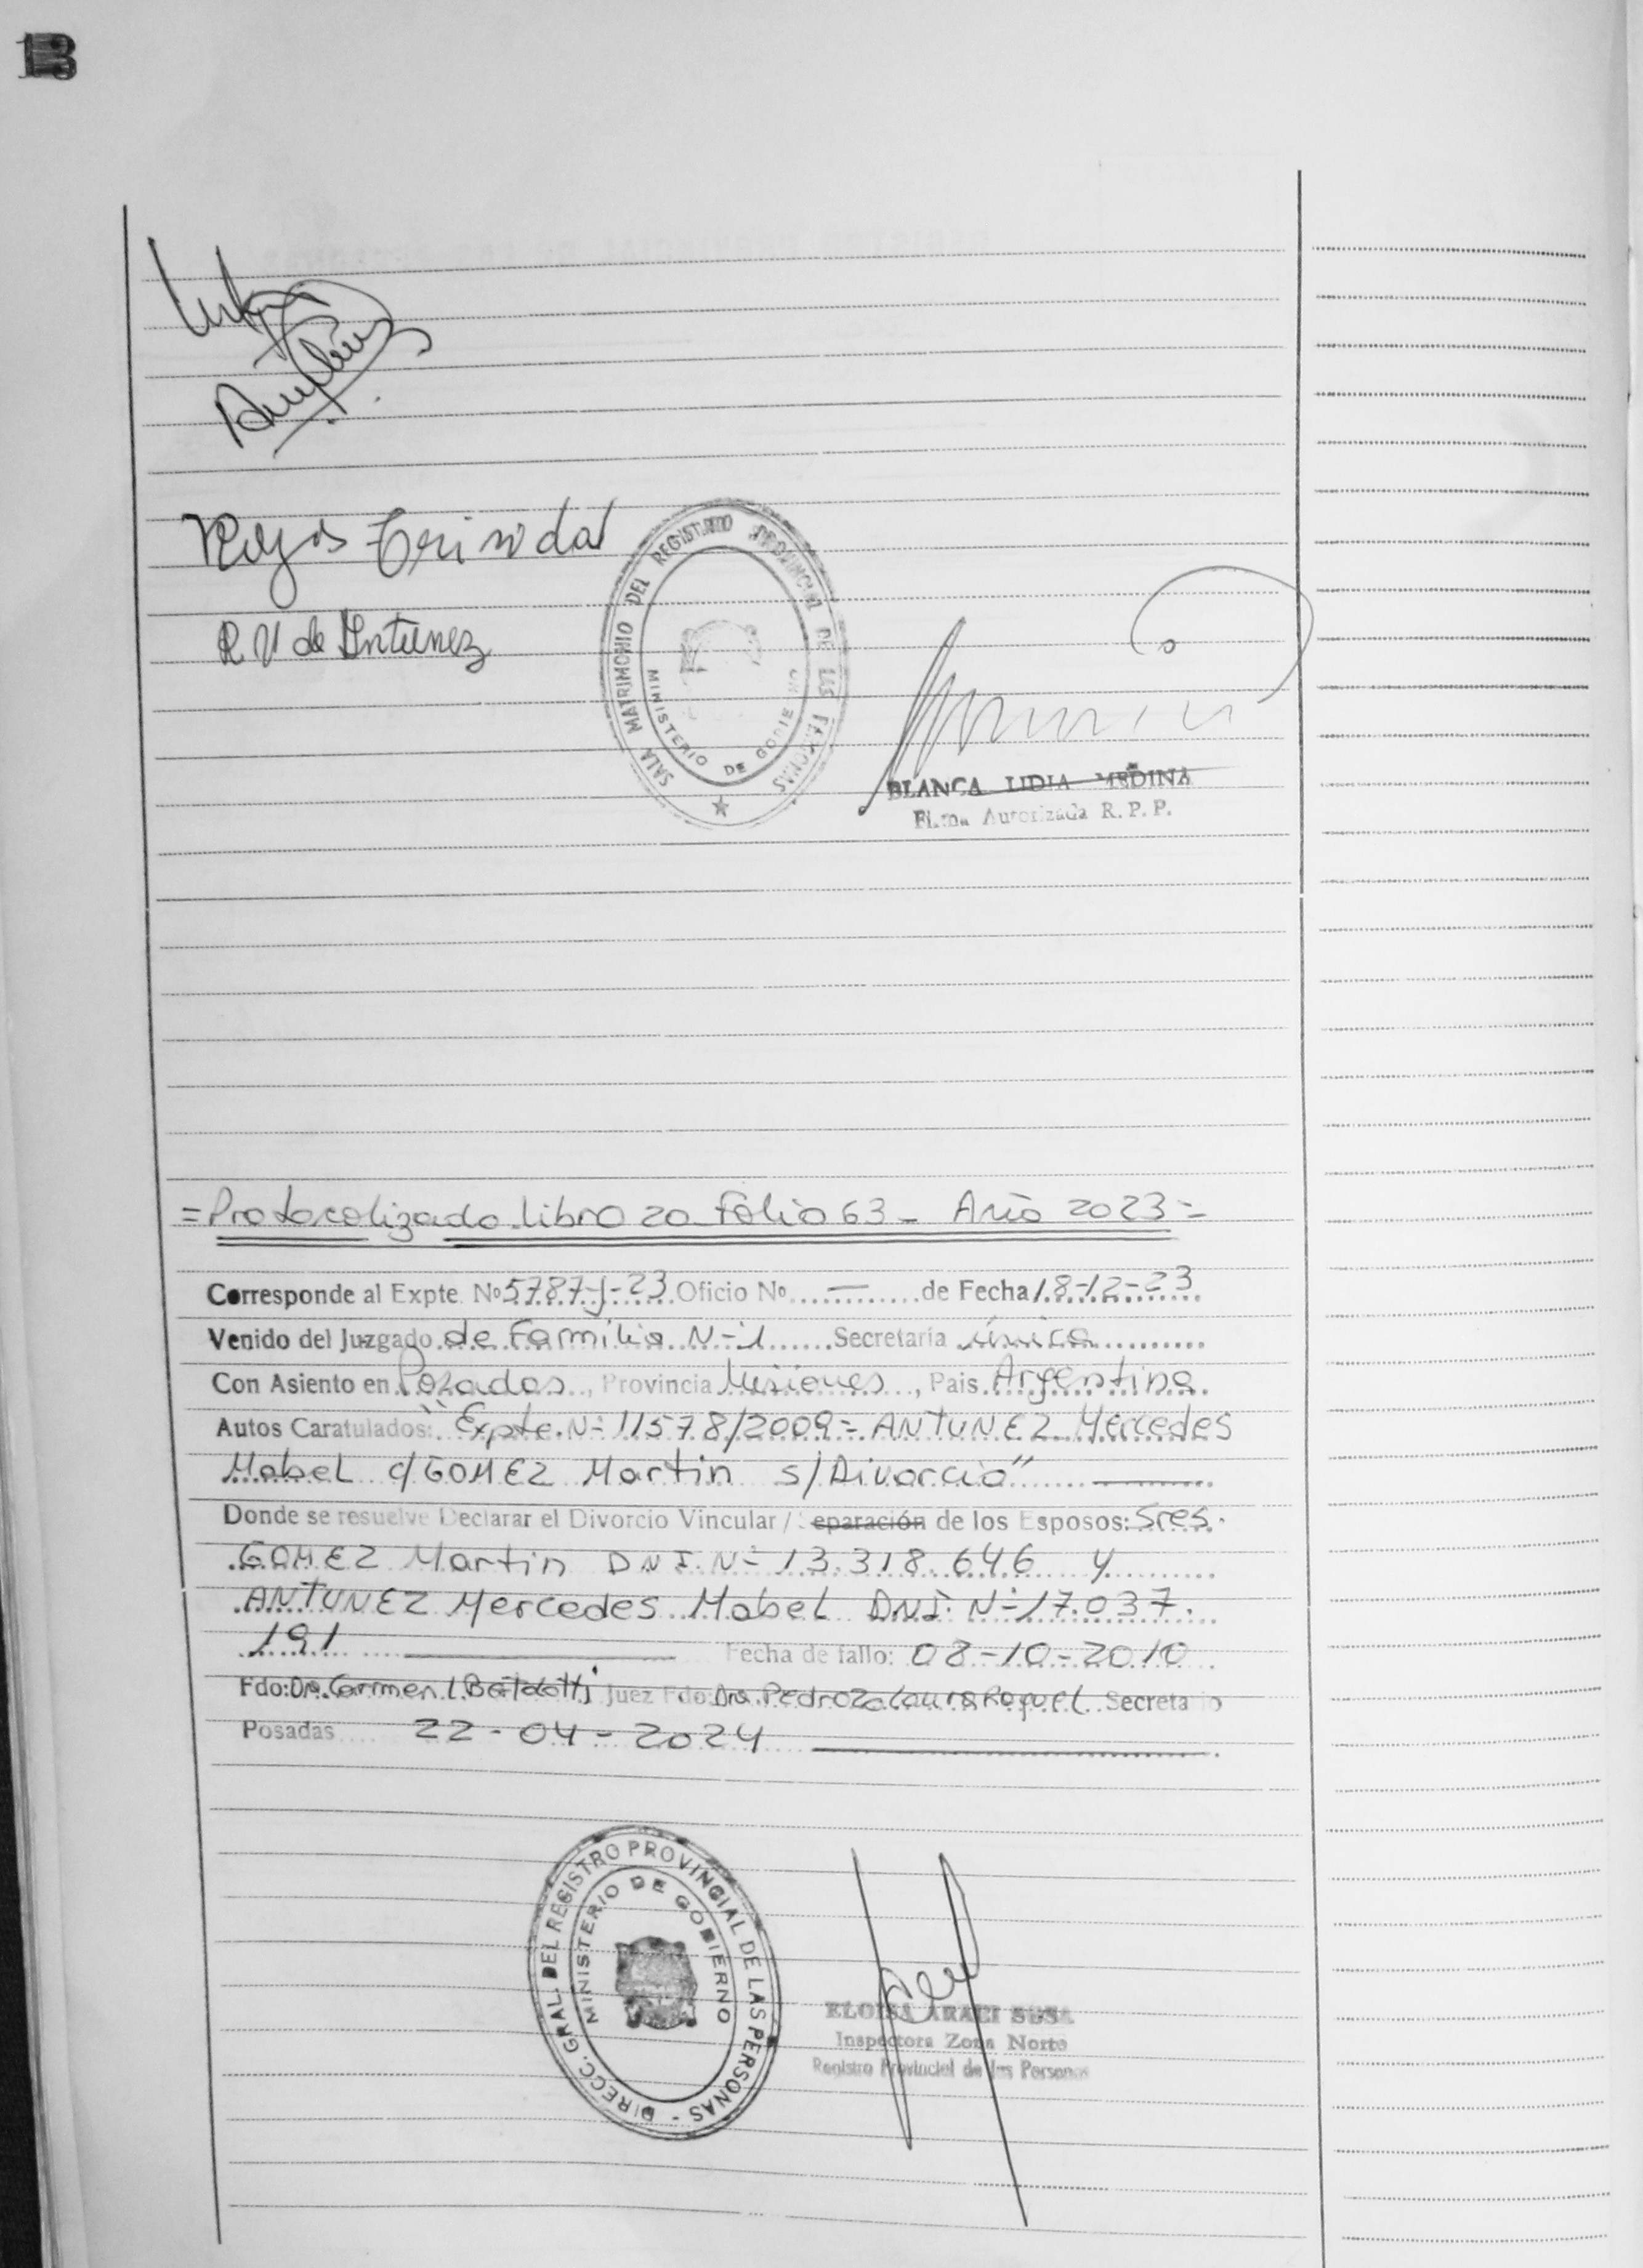 13
Rojas Trinidad
R V de Antunez
SALA MATRIMONIO DEL REGISTRO PROVINCIAL DE LAS PERSONAS
MINISTERIO DE GOBIE NO
BLANCA LIDIA MEDINA
Firma Autorizada R. P. P.
=Protocolizado Libro 20 Folio 63 - Año 2023=
Corresponde al Expte. Nº 5787-J-23 Oficio Nº — de Fecha 18-12-23
Venido del Juzgado de Familia N-1 Secretaría única
Con Asiento en Posadas, Provincia Misiones, Pais Argentina
Autos Caratulados: "Expte. Nº 11578/2009= ANTUNEZ Mercedes
Mabel c/ GOMEZ Martin s/Divorcio"
Donde se resuelve Declarar el Divorcio Vincular / Separación de los Esposos: Sres.
GOMEZ Martin DNI. Nº 13.318.646 y
ANTUNEZ Mercedes Mabel DNI. Nº 17.037.
191 Fecha de fallo: 08-10-2010
Fdo: Dra. Carmen L. Bertolotti Juez Fdo: Dra. Pedrozo Laura Raquel Secretario
Posadas 22-04-2024
DIRECC. GRAL. DEL REGISTRO PROVINCIAL DE LAS PERSONAS -
MINISTERIO DE GOBIERNO
ELOISA ARACI SOSA
Inspectora Zona Norte
Registro Provincial de las Personas